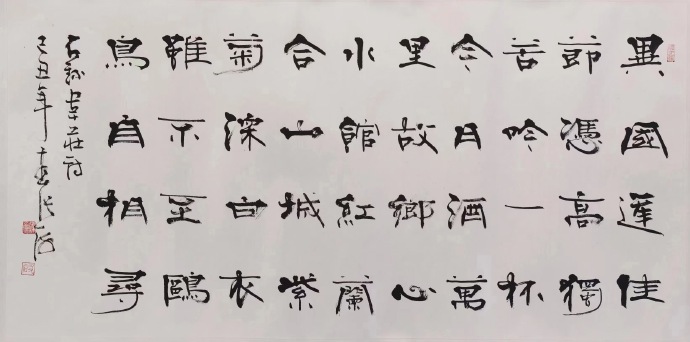 異國逢佳
節憑高獨
苦吟一杯
今日酒萬
里故鄉心
水館紅蘭
合山城紫
菊深白衣
雖不至鷗
鳥自相尋
右錄韋莊詩
己丑年